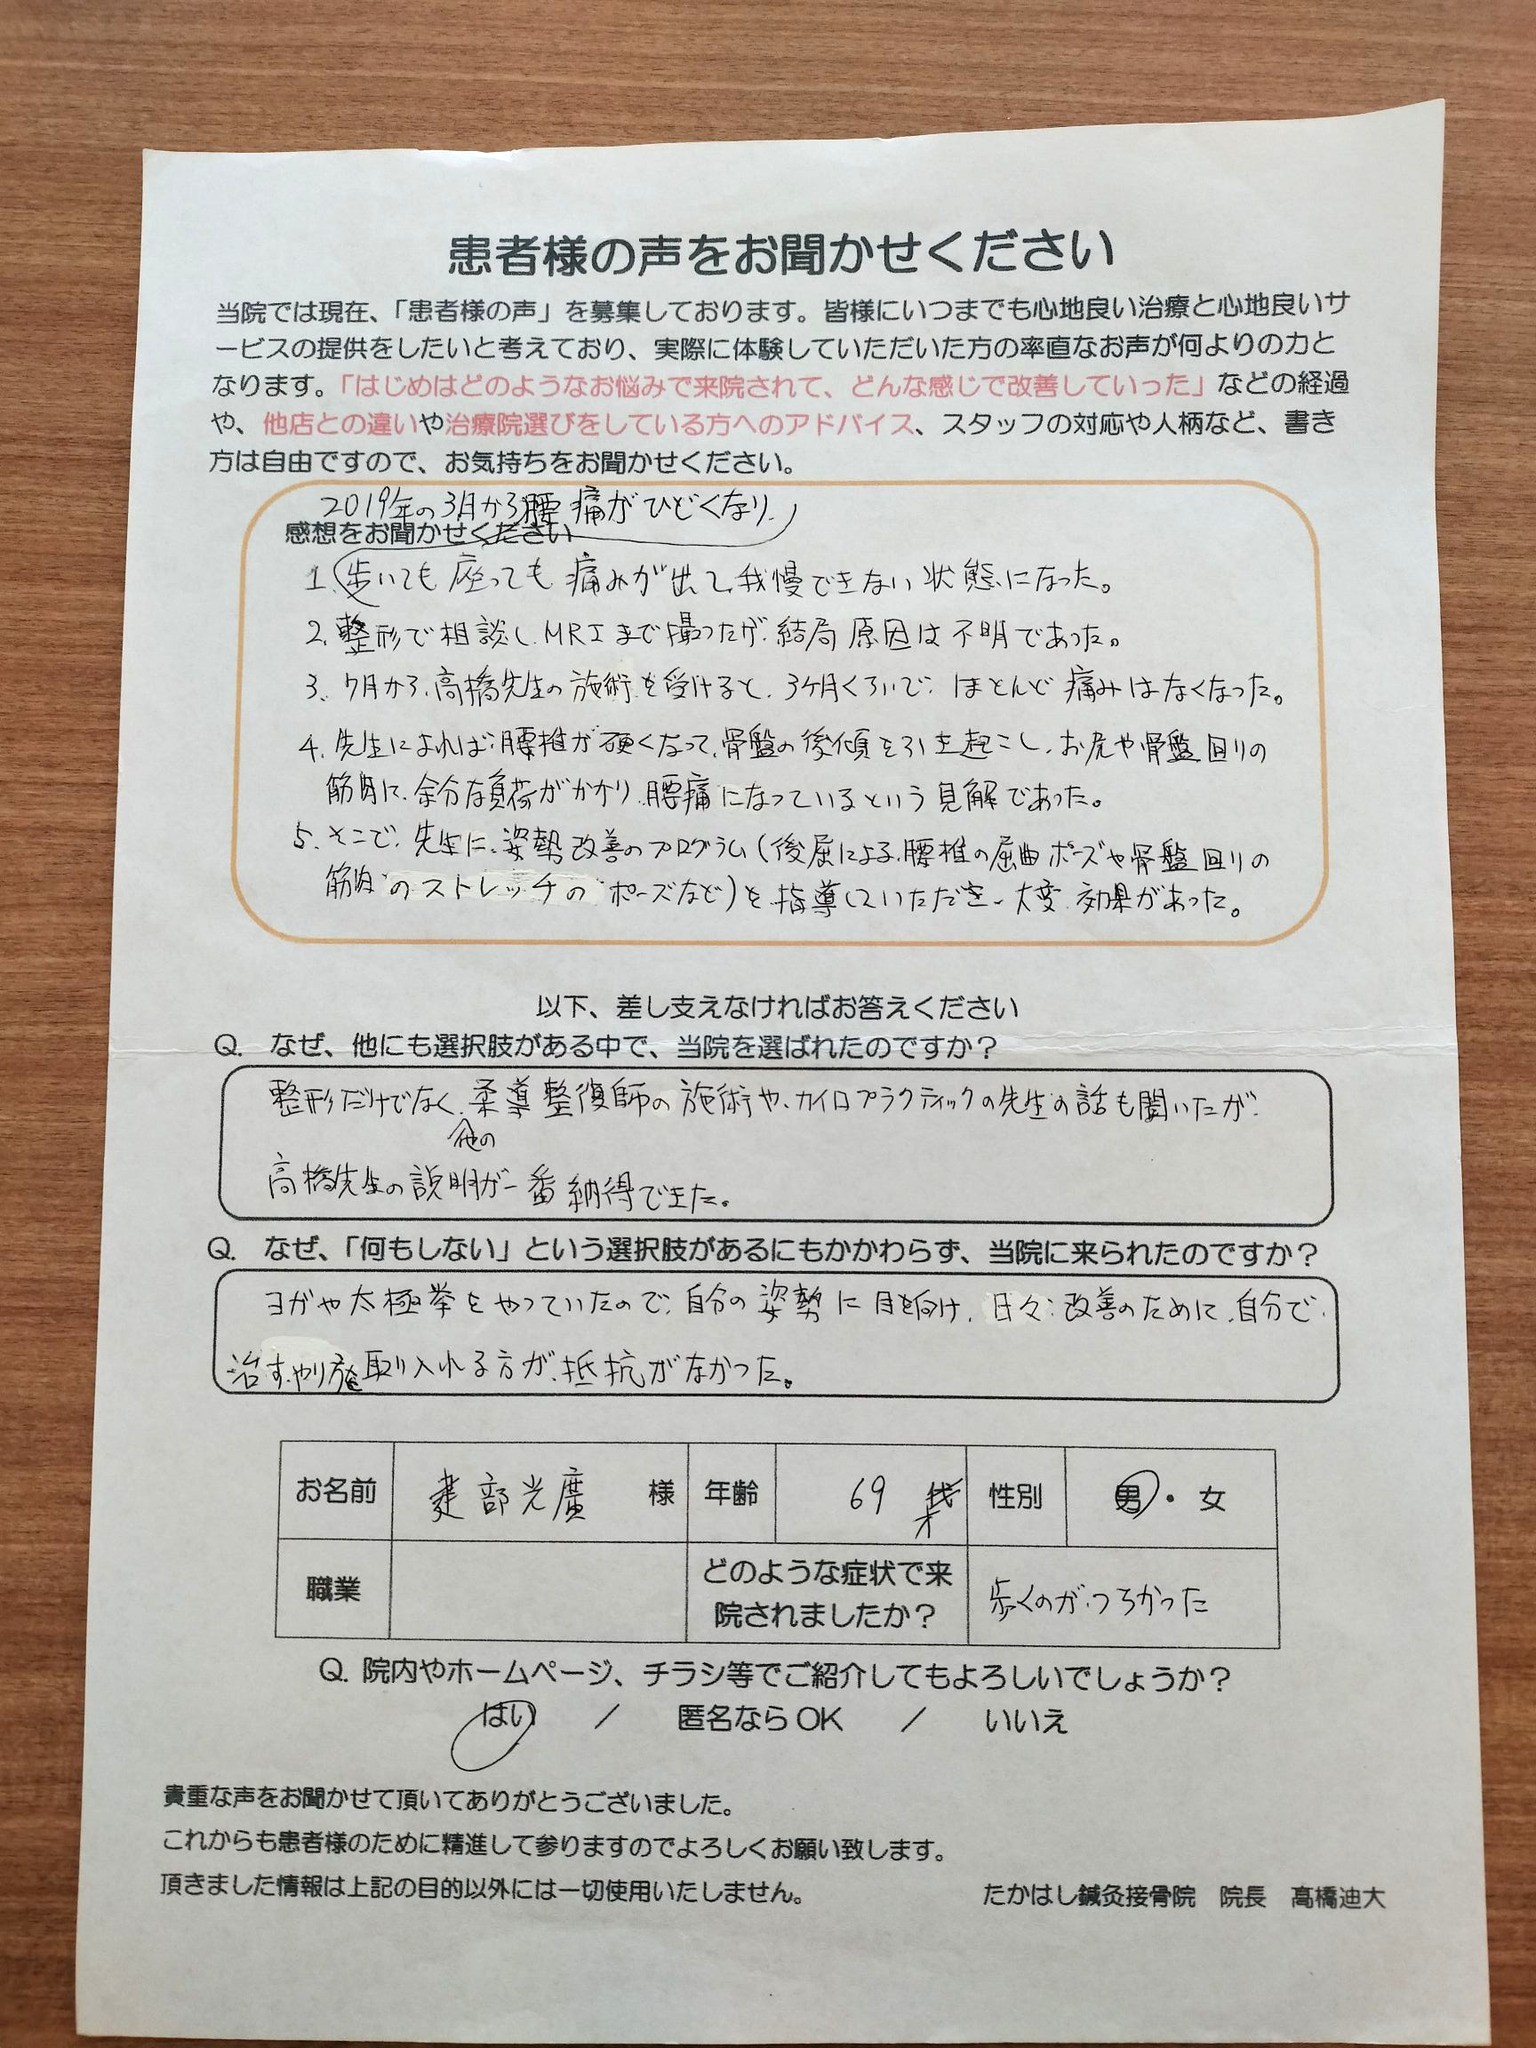 患者様の声をお聞かせください
当院では現在、「患者様の声」を募集しております。皆様にいつまでも心地良い治療と心地良いサ
ービスの提供をしたいと考えており、実際に体験していただいた方の率直なお声が何よりの力と
なります。「はじめはどのようなお悩みで来院されて、どんな感じで改善していった」などの経過
や、他店との違いや治療院選びをしている方へのアドバイス、スタッフの対応や人柄など、書き
方は自由ですので、お気持ちをお聞かせください。
2019年の3月から腰痛がひどくなり、
感想をお聞かせください
1. 歩いても座っても痛みが出て、我慢できない状態になった。
2. 整形で相談し、MRIまで撮ったが、結局原因は不明であった。
3. 7月から、高橋先生の施術を受けると、3ヶ月くらいで、ほとんど痛みはなくなった。
4. 先生によれば、腰椎が硬くなって、骨盤の後傾を引き起こし、お尻や骨盤回りの
筋肉に、余分な負荷がかかり、腰痛になっているという見解であった。
5. そこで、先生に、姿勢改善のプログラム(後屈による腰椎の屈曲ポーズや骨盤回りの
筋肉のストレッチのポーズなど)を指導していただき、大変効果があった。
以下、差し支えなければお答えください
Q. なぜ、他にも選択肢がある中で、当院を選ばれたのですか?
整形だけでなく、他の柔導整復師の施術や、カイロプラクティックの先生の話も聞いたが、
高橋先生の説明が一番納得できた。
Q. なぜ、「何もしない」という選択肢があるにもかかわらず、当院に来られたのですか?
ヨガや太極拳をやっていたので、自分の姿勢に目を向け、日々、改善のために、自分で、
治すやり方を取り入れる方が、抵抗がなかった。
お名前 建部光廣 様 年齢 69 才 性別 男・女
職業 どのような症状で来院されましたか? 歩くのが、つらかった
Q. 院内やホームページ、チラシ等でご紹介してもよろしいでしょうか?
はい / 匿名ならOK / いいえ
貴重な声をお聞かせて頂いてありがとうございました。
これからも患者様のために精進して参りますのでよろしくお願い致します。
頂きました情報は上記の目的以外には一切使用いたしません。 たかはし鍼灸接骨院 院長 高橋迪大